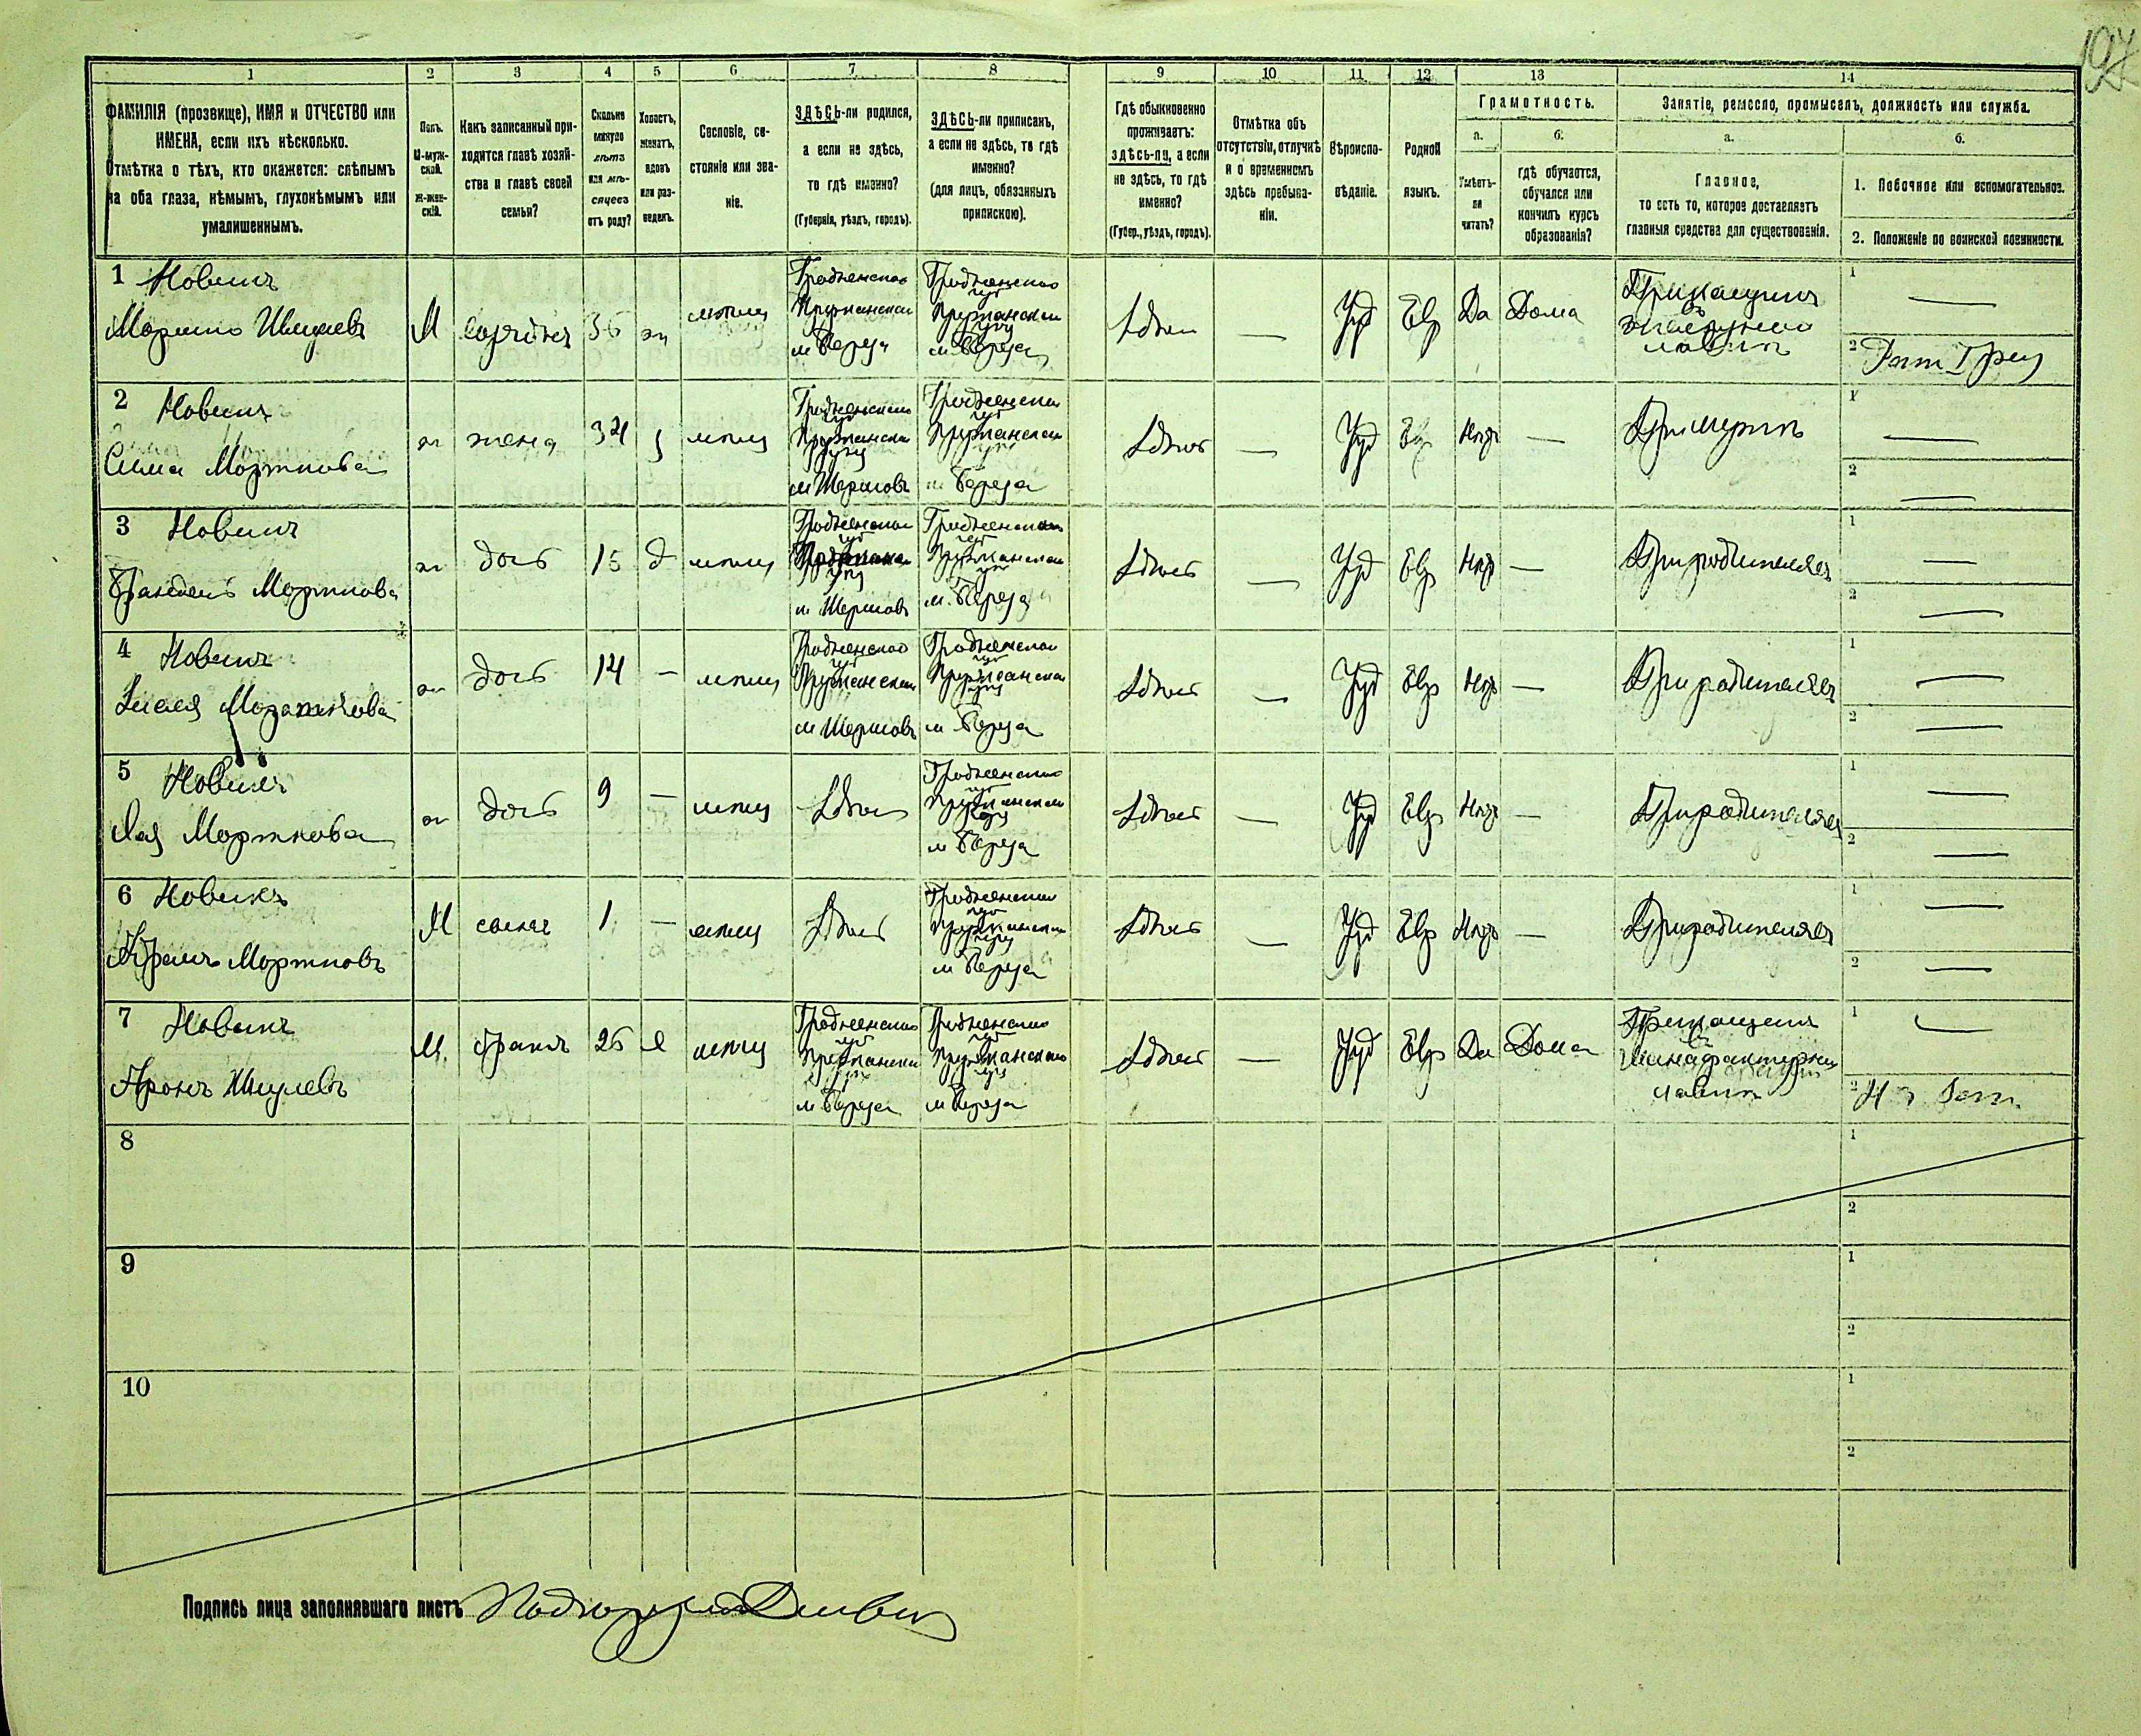 197
1 2 3 4 5 6 7 8 9 10 11 12 13 14
ФАМИЛІЯ (прозвище), ИМЯ и ОТЧЕСТВО или
ИМЕНА, если ихъ нѣсколько.
Отмѣтка о тѣхъ, кто окажется: слѣпымъ
на оба глаза, нѣмымъ, глухонѣмымъ или
умалишеннымъ.
Полъ.
М-муж-
ской.
Ж-жен-
скій.
Какъ записанный при-
ходится главѣ хозяй-
ства и главѣ своей
семьи?
Сколько
минуло
лѣтъ
или мѣ-
сяцевъ
отъ роду?
Холостъ,
женатъ,
вдовъ
или раз-
веденъ.
Сословіе, со-
стояніе или зва-
ніе.
ЗДѢСЬ-ли родился,
а если не здѣсь,
то гдѣ именно?
(Губернія, уѣздъ, городъ).
ЗДѢСЬ-ли приписанъ,
а если не здѣсь, то гдѣ
именно?
(для лицъ, обязанныхъ
припискою).
Гдѣ обыкновенно
проживаетъ:
здѣсь-ли, а если
не здѣсь, то гдѣ
именно?
(Губер., уѣздъ, городъ).
Отмѣтка объ
отсутствіи, отлучкѣ
и о временномъ
здѣсь пребыва-
ніи.
Вѣроиспо-
вѣданіе.
Родной
языкъ.
Грамотность.
а.
Умѣетъ-
ли
читать?
б.
гдѣ обучается,
обучался или
кончилъ курсъ
образованія?
Занятіе, ремесло, промыселъ, должность или служба.
а.
Главное,
то есть то, которое доставляетъ
главныя средства для существованія.
б.
1. Побочное или вспомогательное.
2. Положеніе по воинской повинности.
1 Новикъ
М 36 Гродненской
м Береза
м. Береза
Здѣсь — Іуд Евр Да Дома
Приказчикъ
1 —
2
2 Новикъ
Морткова
жена 34 мѣщ
Гродненской
Пружанской
м Шерешовъ
Гродненской
Пружанской
м Береза
Здѣсь — Іуд Евр Нѣтъ — При мужѣ
1 —
2 —
3 Новикъ
Морткова
дочь 15 д мѣщ
Гродненской
м Шерешовъ
Гродненской
Пружанской
м. Береза
Здѣсь — Іуд Евр Нѣтъ — При родителяхъ
1 —
2 —
4 Новикъ
дочь 14 — мѣщ
Гродненской
Пружанской
м Шерешовъ
Гродненской
Пружанской
м Береза
Здѣсь — Іуд Евр Нѣтъ — При родителяхъ
1 —
2 —
5 Новикъ
Лея Морткова
дочь 9 — мѣщ Здѣсь
Гродненской
Пружанской
м Береза
Здѣсь — Іуд Евр Нѣтъ — При родителяхъ
1 —
2 —
6 Новикъ
Мортковъ
М сынъ 1 — мѣщ Здѣсь
Гродненской
Пружанской
м Береза
Здѣсь — Іуд Евр Нѣтъ — При родителяхъ
1 —
2 —
7 Новикъ
Аронъ Шмулевъ
М. братъ 26 мѣщ
Гродненской
Пружанской
м Береза
Гродненской
Пружанской
м Береза
Здѣсь — Іуд Евр Да Дома
Приказчикъ
въ
мануфактурной
лавкѣ
1 —
2
8
1
2
9
1
2
10
1
2
Подпись лица заполнявшаго листъ